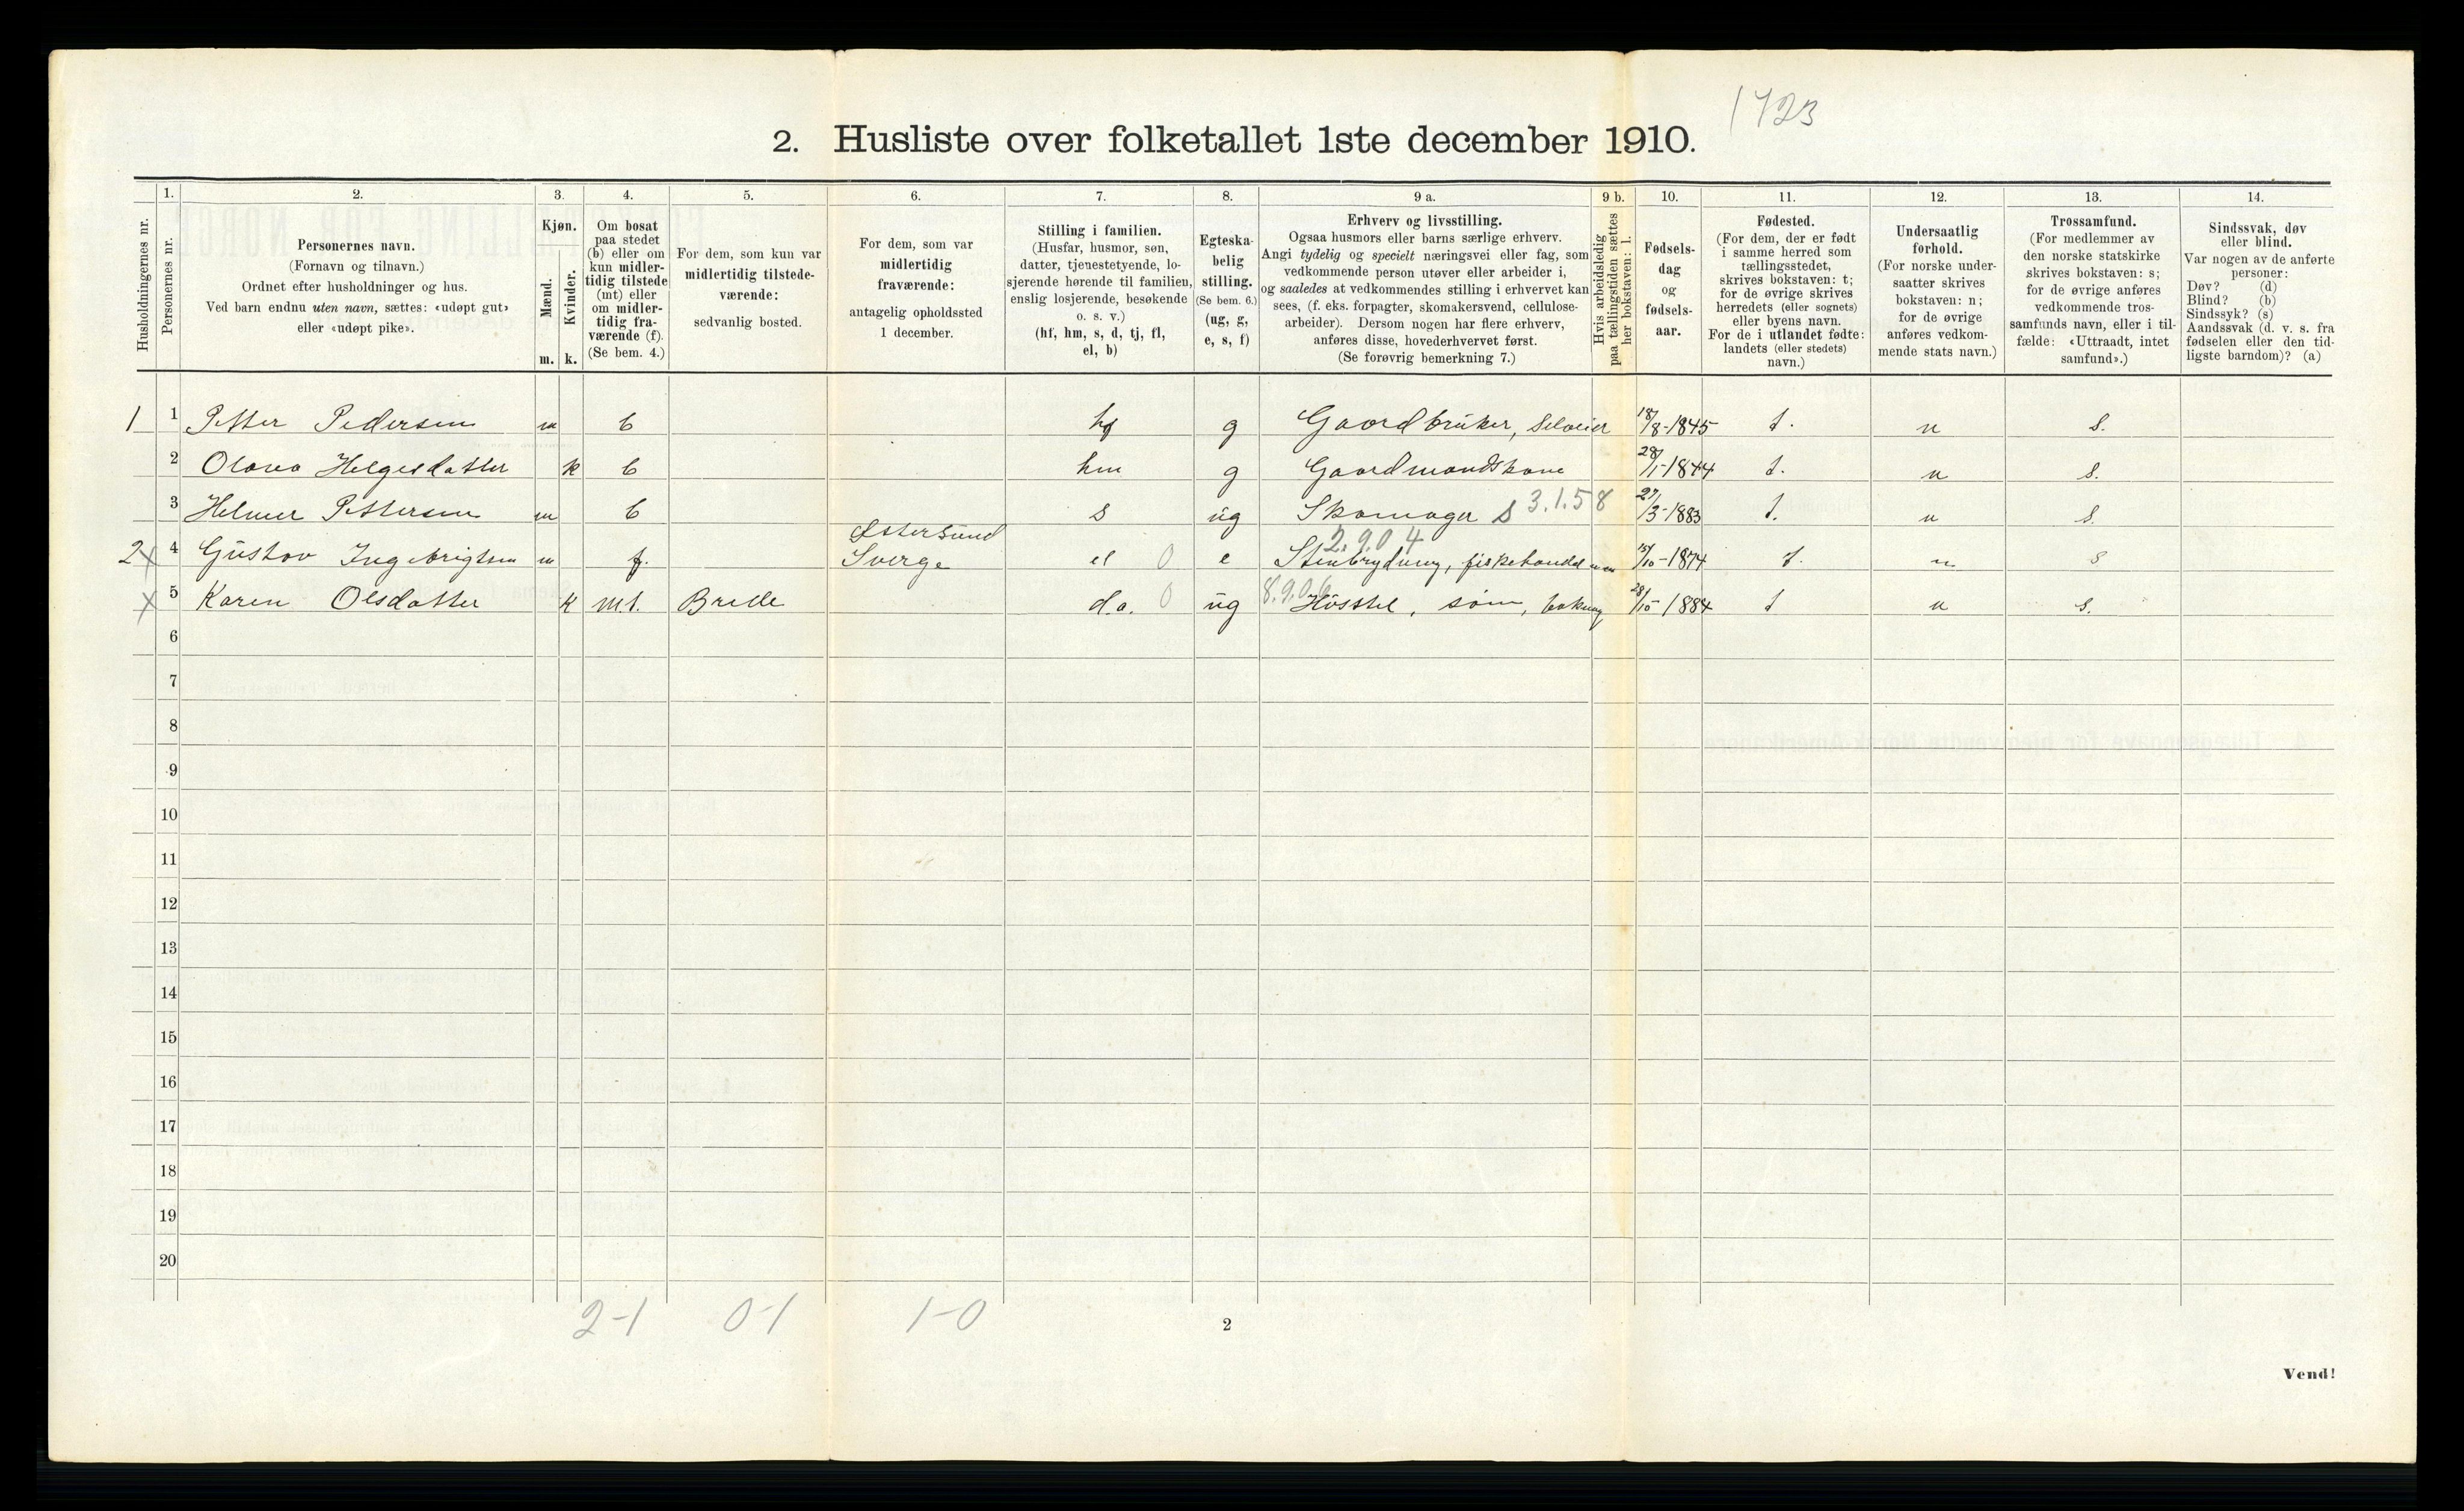 1723
2. Husliste over folketallet 1ste december 1910.
Husholdningernes nr.
1. Personernes nr.
2. Personernes navn.
(Fornavn og tilnavn.)
Ordnet efter husholdninger og hus.
Ved barn endnu uten navn, sættes: «udøpt gut»
eller «udøpt pike».
3. Kjøn.
Mænd. Kvinder.
m. k.
4. Om bosat
paa stedet
(b) eller om
kun midler-
tidig tilstede
(mt) eller
om midler-
tidig fra-
værende (f).
(Se bem. 4.)
5. For dem, som kun var
midlertidig tilstede-
værende:
sedvanlig bosted.
6. For dem, som var
midlertidig
fraværende:
antagelig opholdssted
1 december.
7. Stilling i familien.
(Husfar, husmor, søn,
datter, tjenestetyende, lo-
sjerende hørende til familien,
enslig losjerende, besøkende
o. s. v.)
(hf, hm, s, d, tj, fl,
el, b)
8. Egteska-
belig
stilling.
(Se bem. 6.)
(ug, g,
e, s, f)
9 a. Erhverv og livsstilling.
Ogsaa husmors eller barns særlige erhverv.
Angi tydelig og specielt næringsvei eller fag, som
vedkommende person utøver eller arbeider i,
og saaledes at vedkommendes stilling i erhvervet kan
sees, (f. eks. forpagter, skomakersvend, cellulose-
arbeider). Dersom nogen har flere erhverv,
anføres disse, hovederhvervet først.
(Se forøvrig bemerkning 7.)
9 b. Hvis arbeidsledig
paa tællingstiden sættes
her bokstaven: l.
10. Fødsels-
dag
og
fødsels-
aar.
11. Fødested.
(For dem, der er født
i samme herred som
tællingsstedet,
skrives bokstaven: t;
for de øvrige skrives
herredets (eller sognets)
eller byens navn.
For de i utlandet fødte:
landets (eller stedets)
navn.)
12. Undersaatlig
forhold.
(For norske under-
saatter skrives
bokstaven: n;
for de øvrige
anføres vedkom-
mende stats navn.)
13. Trossamfund.
(For medlemmer av
den norske statskirke
skrives bokstaven: s;
for de øvrige anføres
vedkommende tros-
samfunds navn, eller i til-
fælde: «Uttraadt, intet
samfund».)
14. Sindssvak, døv
eller blind.
Var nogen av de anførte
personer:
Døv? (d)
Blind? (b)
Sindssyk? (s)
Aandssvak (d. v. s. fra
fødselen eller den tid-
ligste barndom)? (a)
1 1 Petter Pedersen m b hf g Gaardbruker, Selveier 18/8-1845 t. n s.
2 Olava Helgesdatter k b hm g Gaardmandskone 28/1-1844 t. n s.
3 Helmer Pettersen m b s ug Skomager s 3.1.58 27/3-1883 t. n s.
2 x 4 Gustav Ingebrigtsen m f. Østersund Sverge el 0 e 2.9.04 Stenbrydning, fiskehandel 15/10-1874 t. n s
x 5 Karen Olsdatter k m.t. Brelle d.o. 0 ug 8.9.06 Husstel, søm, bakning 28/10-1884 t n s.
6
7
8
9
10
11
12
13
14
15
16
17
18
19
20
2-1 0-1 1-0
2
Vend!